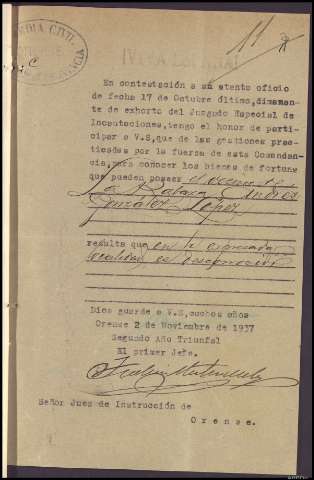 DIA CIVIL
¡VIVA ESPAÑA!
11
En contestación a su atento oficio
de fecha 17 de Octubre último, dimanante
de exhorto del Juzgado Especial de
Incautaciones, tengo el honor de parti-
cipar a V.S, que de las gestiones prac-
ticadas por la fuerza de esta Comandan-
cia, para conocer los bienes de fortuna
que pueden poseer el vecino de
La Rabaza
González López
resulta que en la expresada
localidad es desconocido
Dios guarde a V.S, muchos años
Orense 2 de Noviembre de 1937
Segundo Año Triunfal
El primer Jefe.
Señor Juez de Instrucción de
Orense.